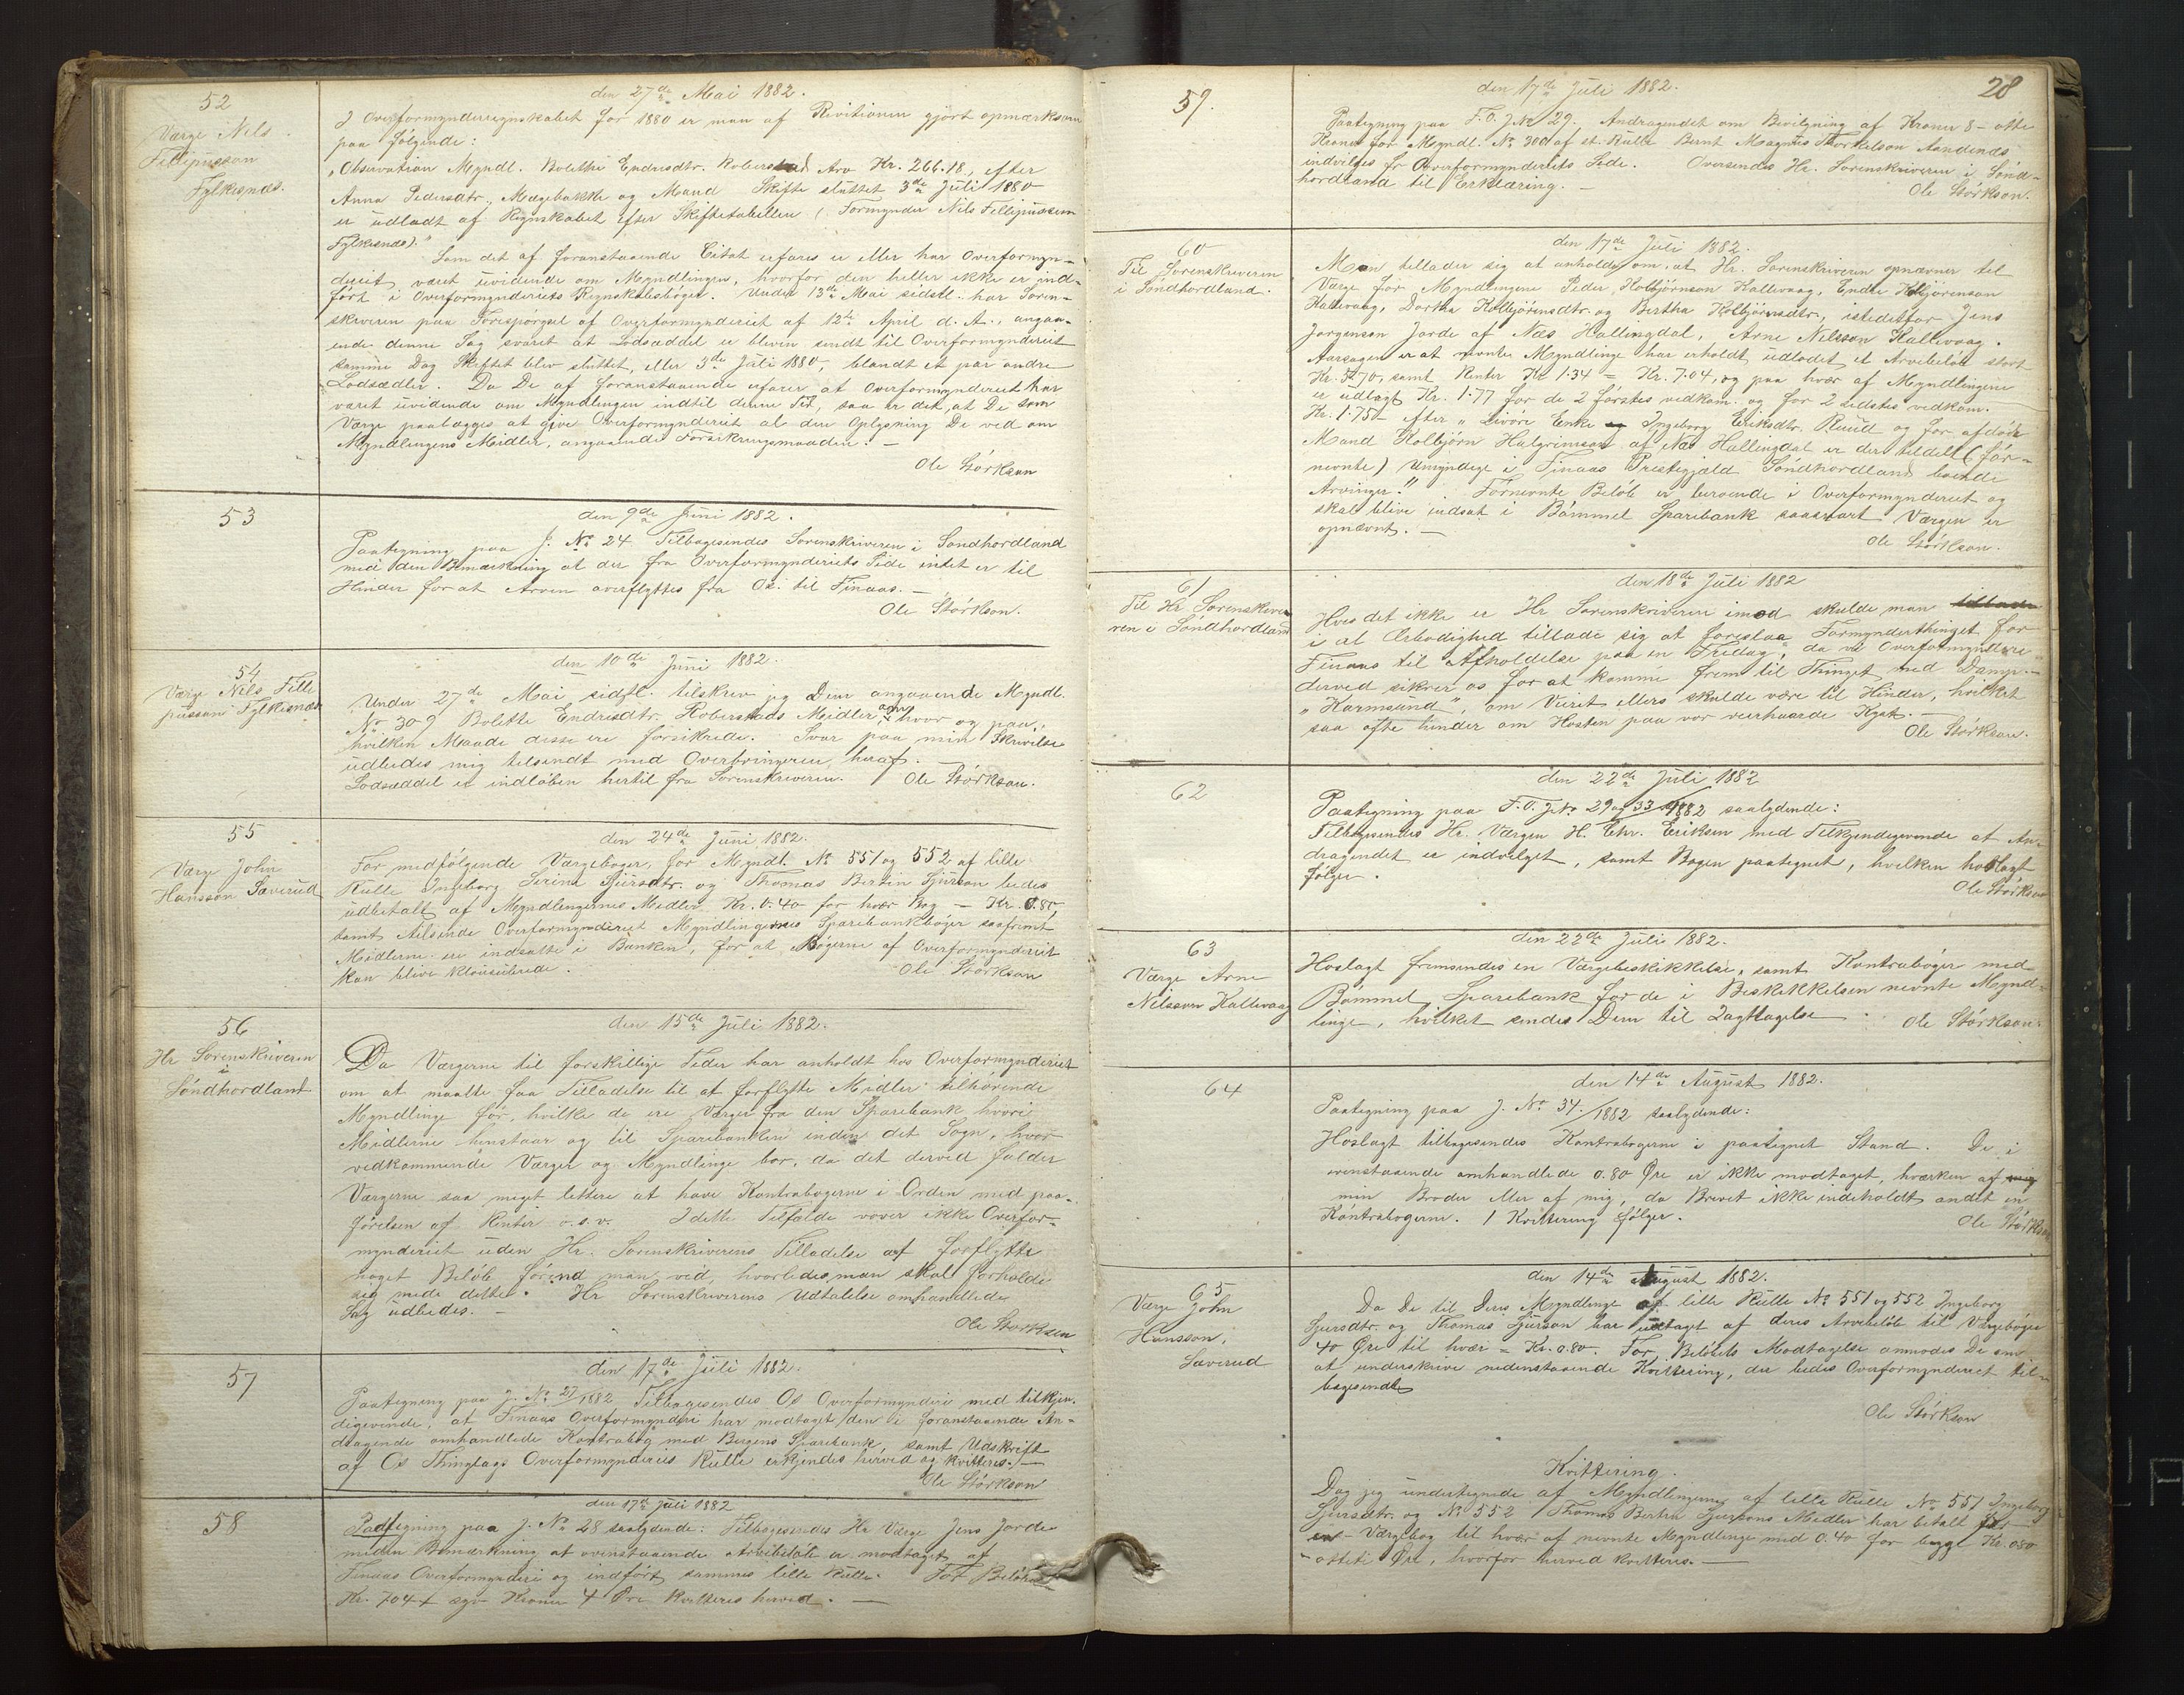 52
Værge Nils
Fillipusson
Fylkesnæs.
den 27de Mai 1882.
I Overformynderregnskabet for 1880 er man af Revitionen gjört opmærksom
paa følgende:
„Observation Myndl. Bolethe Endresdtr. Roberstad Arv Kr. 266.18, efter
Anna Pedersdtr. Møgebakke og Mand Skifte sluttet 3de Juli 1880
er udladt af Regnskabet efter Skiftetabellen (Formynder Nils Fillipusson
Fylkesnæs)."
Som det af foranstaaende Citat erfares er eller har Overformyn-
deriet været uvidende om Myndlingen, hvorfor den heller ikke er ind-
ført i Overformynderiets Regnskabsbøger. Under 13de Mai sidstl. har Soren-
skriveren paa Forespørgsel af Overformynderiet af 12te April d. A., angaa-
ende denne Sag svaret at Lodsæddel er bleven sendt til Overformynderiet
samme Dag Skiftet blev sluttet, eller 3de Juli 1880, blandt et par andre
Lodsædler. Da De af foranstaaende erfarer at Overformynderiet har
været uvidende om Myndlingen indtil denne Tid, saa er det, at De som
Værge paalægges at give Overformynderiet al den Oplysning De ved om
Myndlingens Midler, angaaende Forsikringsmaaden. —
Ole Störkson
53
den 9de Juni 1882.
Paategning paa J. No 24 Tilbagesendes Sorenskriveren i Söndhordland
med den Bemærkning at der fra Overformynderiets Side intet er til
Hinder for at Arven overflyttes fra Os til Finaas. —
Ole Störkson.
54
Værge Nils Filli
pusson Fylkesnæs
den 10de Juni 1882.
Under 27de Mai sidstl. tilskrev jeg Dem angaaende Myndl.
No 309 Bolette Endresdtr. Roberstads Midler om hvor og paa
hvilken Maade disse ere forsikrede. Svar paa min Skrivelse
udbedes mig tilsendt med Overbringeren heraf.
Lodsæddel er indløben hertil fra Sorenskriveren. Ole Störkson.
55
Værge John
Hansson Saverud
den 24de Juni 1882.
For medfølgende Værgebøger, for Myndl. No 551 og 552 af lille
Rulle Ingeborg Serine Sjursdtr. og Thomas Bertin Sjurson bedes
udbetalt af Myndlingernes Midler Kr. 0.40 for hver Bog — Kr. 0.80,
samt tilsende Overformynderiet Myndlingernes Sparebankbøger saafremt
Midlerne er indsatte i Banken, for at Bøgerne af Overformynderiet
kan blive klausulerede.
Ole Störkson
56
Hr Sorenskriveren
i
Söndhordland
den 15de Juli 1882.
Da Værgerne til forskillige Tider har anholdt hos Overformynderiet
om at maatte faa Tilladelse til at forflytte Midler tilhørende
Myndlinge för, hvilke de ere Værger fra den Sparebank hvori
Midlerne henstaar og til Sparebanken inden det Sogn, hvor
vedkommende Værger og Myndlinge bor, da det derved falder
Værgerne saa meget lettere at have Kontrabøgerne i Orden med paa-
førelsen af Renter o.s.v. I dette Tilfælde vover ikke Overfor-
mynderiet uden Hr. Sorenskriverens Tilladelse at forflytte
noget Beløb förend man ved, hvorledes man skal forholde
sig med dette. Hr Sorenskriverens Udtalelse omhandlede
Sag udbedes. —
Ole Störkson
57
den 17de Juli 1882.
Paategning paa J. No 27/1882 Tilbagesendes Os Overformynderi med tilkjen-
digevende, at Finaas Overformynderi har modtaget den i foranstaaende An-
dragende omhandlede Kontrabog med Bergens Sparebank, samt Udskrift
af Os Thinglags Overformynderies Rulle erkjendes herved og kvitteres. —
Ole Störkson
58
den 17de Juli 1882
Paategning paa J. No 28 saalydende: Tilbagesendes Hr Værge Jens Jorde
meden Bemærkning at ovenstaaende Arvebeløb er modtaget af
Finaas Overformynderi og indført sammes lille Rulle. For Beløbet
Kr. 7.04 syv Kroner 4 Øre kvitteres herved. —
28
59.
den 17de Juli 1882.
Paategning paa F.O. J.No 29. Andragendet om Bevilgning af Kroner 8 - otte
Kroner for Myndl. No 300 af st. Rulle Bernt Magnus Thorkelson Aandenæs
indvilges fr Overformynderiets Side. Oversendes Hr. Sorenskriveren i Sönd-
hordland til Erklæring. —
Ole Störkson.
60
Til Sorenskriveren
i Söndhordland.
den 17de Juli 1882.
Man tillader sig at anholde om, at Hr. Sorenskriveren opnævner til
Værge for Myndlingene Peder Kolbjörnson Kallevaag, Endre Kolbjörenson
Kallevaag, Dortha Kolbjörensdtr. og Bertha Kolbjörensdtr., istedetfor Jens
Jorgenson Jorde af Næs Hallingdal, Arne Nilsson Kallevaag.
Aarsagen er at nevnte Myndlinge har erholdt udlodet et Arvebeløb stort
Kr. 5.70, samt Renter Kr 1.34 = Kr. 7.04, og paa hver af Myndlingene
er udlagt Kr. 1.77 for de 2 förstes vedkom. og for 2 sidstes vedkom.
Kr. 1.75 - efter „Livöre Enke Ingeborg Eriksdtr. Ruud og for afdöde
Mand Kolbjörn Halgrimson af Næs Hallingdal er der tildelt (för-
nevnte) Umyndige i Finaas Præstegjæld Söndhordland boende
Arvinger." Fornevnte Beløb er beroende i Overformynderiet og
skal blive indsat i Bömmel Sparebank saasnart Værgen er
opnævnt. —
Ole Störkson.
61
Til Hr Sorenskrive
ren i Söndhordland
den 18de Juli 1882
Hvis det ikke er Hr Sorenskriveren imod skulde man
i al Ærbødighed tillade sig at foreslaa Formynderthinget for
Finaas til Afholdelse paa en Fredag, da vi Overformyndere
derved sikrer os for at komme frem til Thinget med Damp-
„Karmsund", om Veiret ellers skulde være til Hinder, hvilket
saa ofte hender om Hösten paa vor veirhaarde Kyst. —
Ole Störkson.
62
den 22de Juli 1882
Paategning paa F.O. J.No 29 og 33/1882 saalydende:
Tilbagesendes Hr. Værgen H. Chr. Eriksen med Tilkjendegivende at An-
dragendet er indvilget, samt Bogen paategnet, hvilken hoslagt
følger.
Ole Störkson
63
Værge Arne
Nilsson Kallevaag
den 22de Juli 1882.
Hoslagt fremsendes en Værgebeskikkelse, samt Kontrabøger med
Bömmel Sparebank for de i Beskikkelsen nevnte Mynd-
linge, hvilket sendes Dem til Iagttagelse.
Ole Störkson.
64
den 14de August 1882.
Paategning paa J. No 34./1882 saalydende:
Hoslagt tilbagesendes Kontrabogerne i paategnet Stand. De i
ovenstaaende omhandlede 0.80 Øre er ikke modtaget, hværken af mig
min Broder eller af mig, da Brevet ikke indeholdt andet en
Kontrabogerne. 1 Kvittering følger.
Ole Störkson
65
Værge John
Hansson,
Saverud
den 14de August 1882.
Da De til Deres Myndlinge af lille Rulle No 551 og 552 Ingeborg
Sjursdtr. og Thomas Sjurson har udlagt af deres Arvebeløb til Værgebøger
40 Øre til hver = Kr. 0.80. For Beløbets Modtagelse anmodes De om
at underskrive nedenstaaende Kvittering, der bedes Overformynderiet til-
bagesendt
Ole Störkson
Kvittering.
Dag jeg undertegnede af Myndlingernes af lille Rulle No 551 Ingeborg
Sjursdtr. og No 552 Thomas Bertin Sjursons Midler har betalt for
en - Værgebog til hver af nevnte Myndlinge med 0.40 for begge Kr. 0.80
- otteti Øre, hvorfor herved kvitteres. —